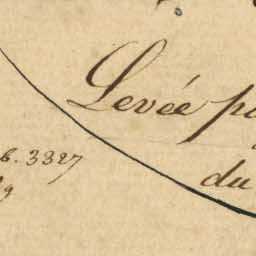 Levée p
6. 3327
du